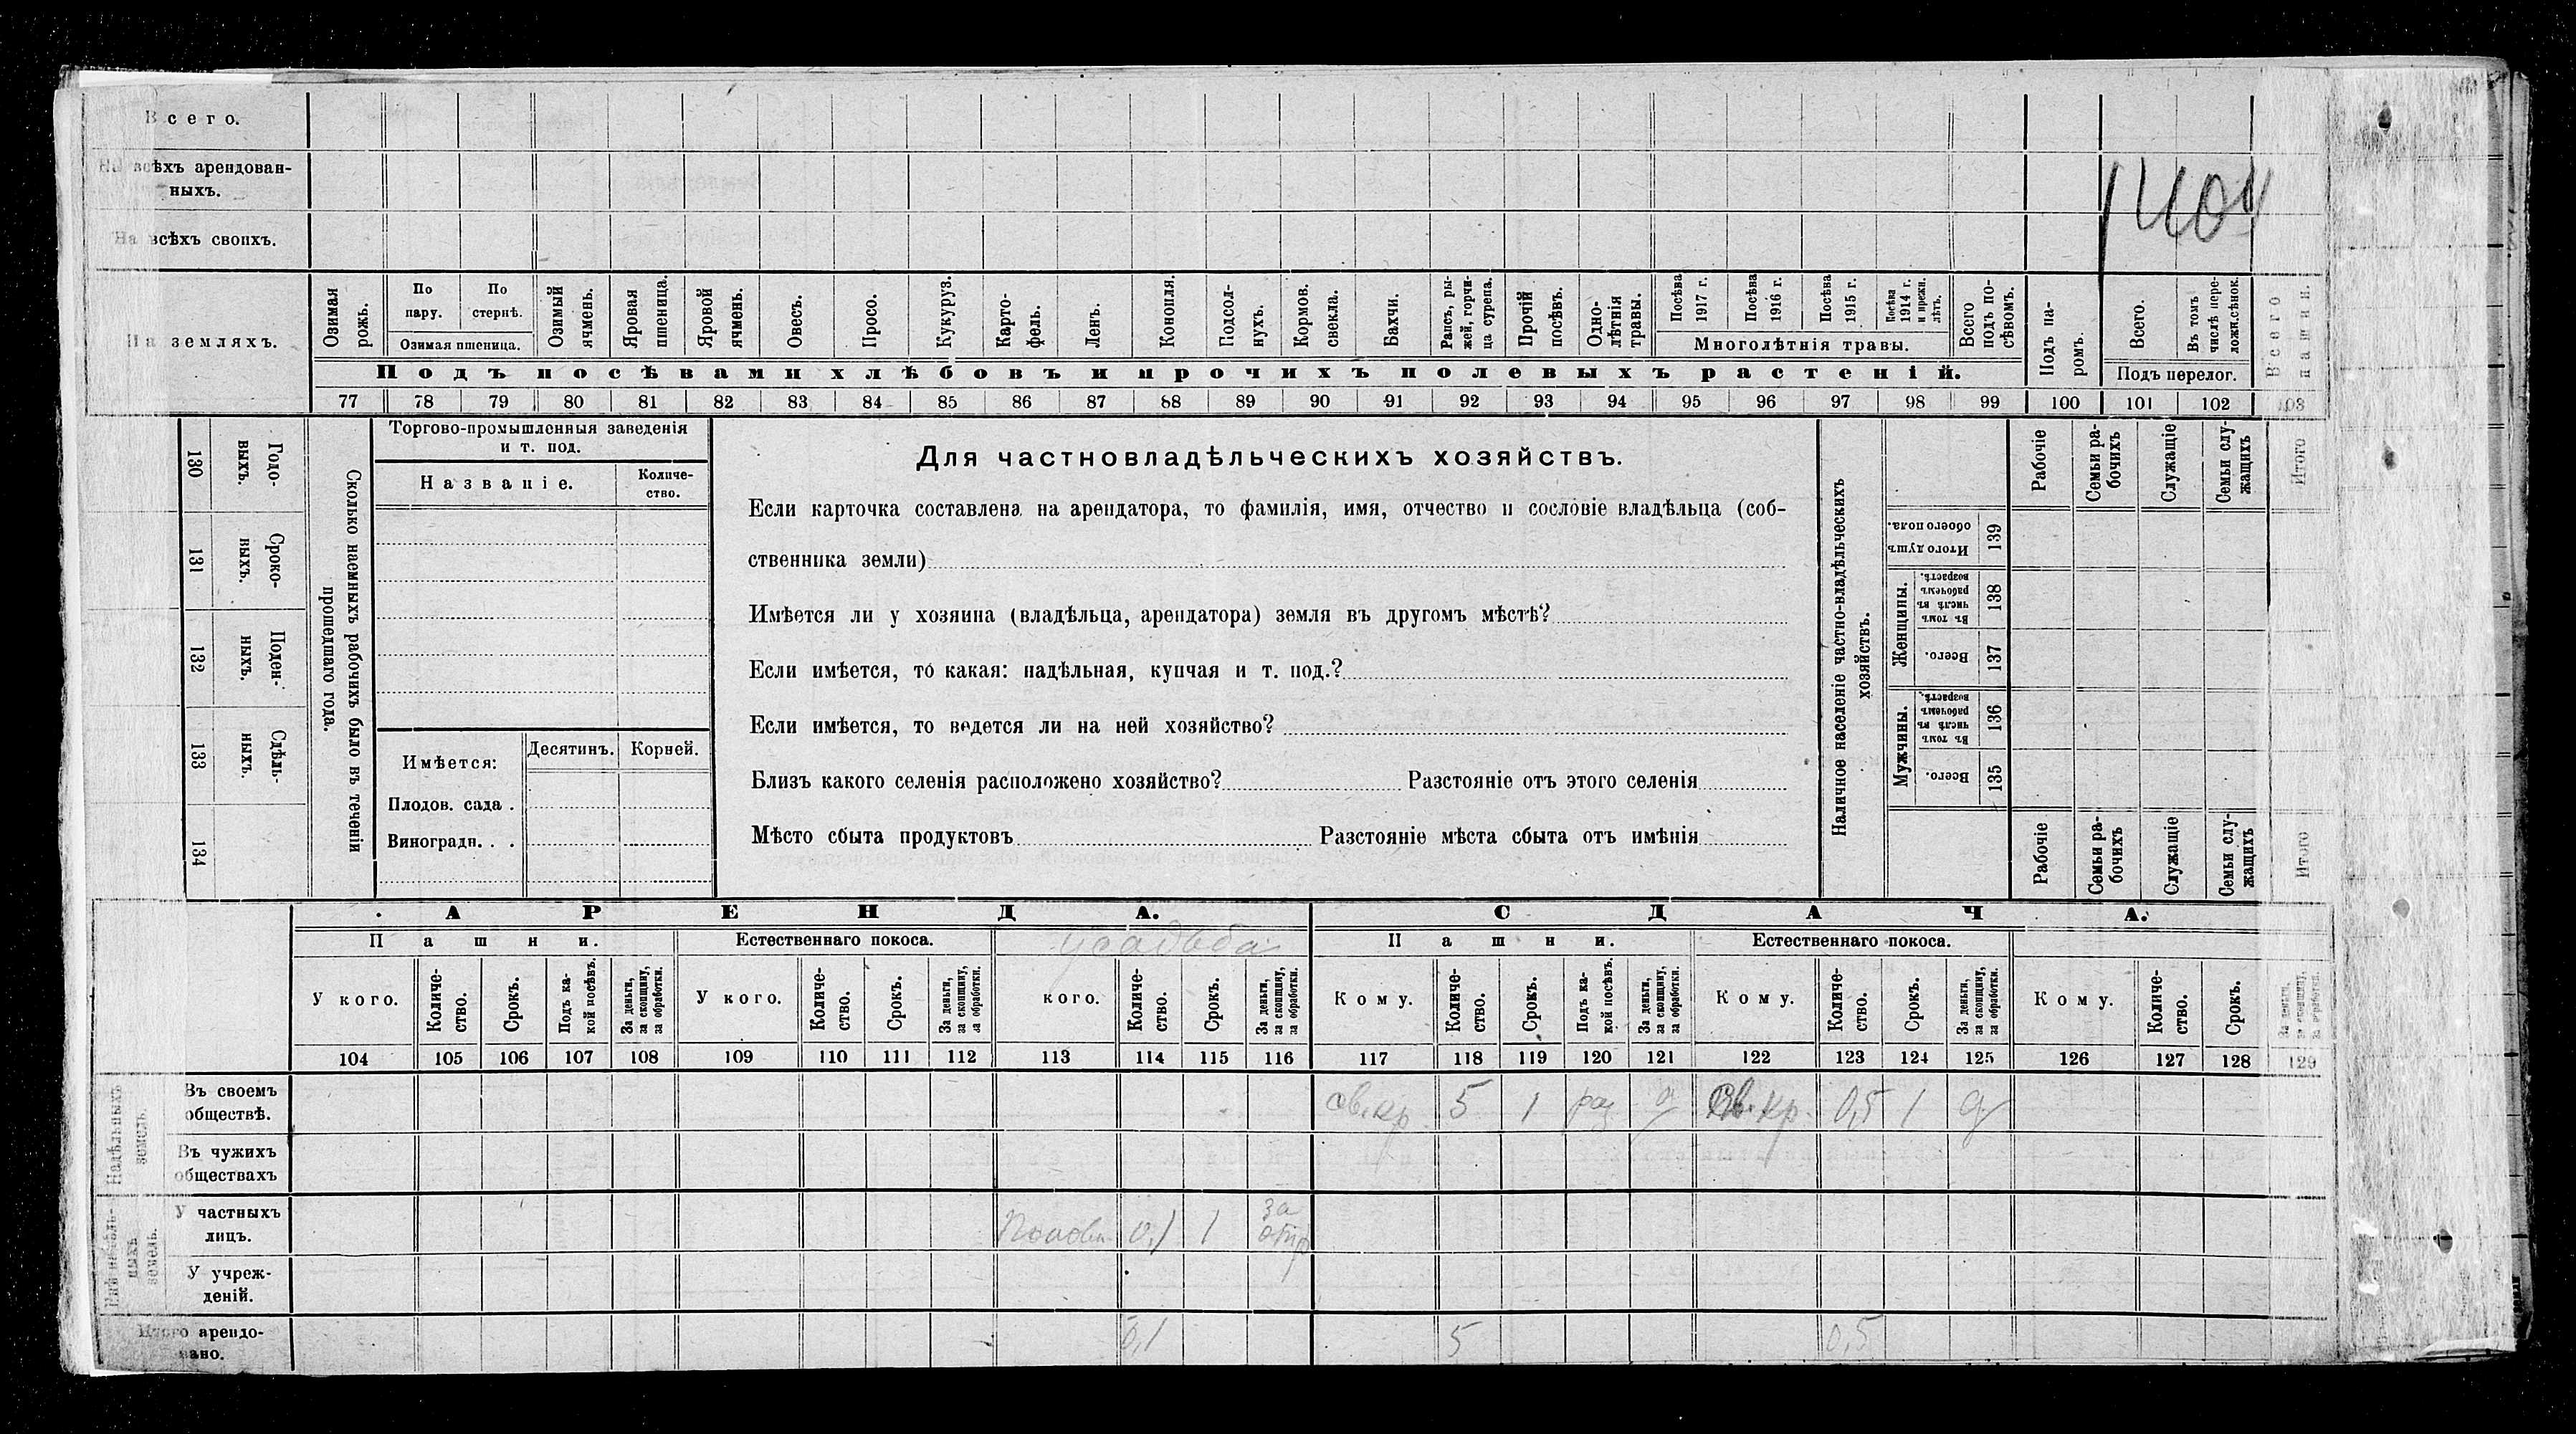 Всего.
На всѣхъ арендован-
ныхъ.
На всѣхъ своихъ.
1404
На земляхъ.
Озимая рожь.
По пару.
По стернѣ.
Озимая пшеница.
Озимый ячмень.
Яровая пшеница.
Яровой ячмень.
Овесъ.
Просо.
Кукуруз.
Карто-
фель.
Ленъ.
Конопля.
Подсол-
нухъ.
Кормов.
свекла.
Бахчи.
Рапсъ, ры-
жей, горчи-
ца сурепа.
Прочій
посѣвъ.
Одно-
лѣтнія
травы.
Посѣва
1917 г.
Посѣва
1916 г.
Посѣва
1915 г.
Посѣва
1914 г.
и прежн.
лѣтъ.
Многолѣтнія травы.
Всего
подъ по-
сѣвомъ.
Подъ посѣвами хлѣбовъ и прочихъ полевыхъ растеній.
Подъ па-
ромъ.
Всего.
Въ томъ
числѣ пере-
ложн.сѣнок.
Подъ перелог.
Всего
пашни.
77 78 79 80 81 82 83 84 85 86 87 88 89 90 91 92 93 94 95 96 97 98 99 100 101 102 103
130 Годо-
выхъ.
131 Сроко-
выхъ.
132 Поден-
ныхъ.
133 Сдѣль-
ныхъ.
134
Сколько наемныхъ рабочихъ было въ теченіи
прошедшаго года.
Торгово-промышленныя заведенія
и т. под.
Названіе.
Количе-
ство.
Имѣется:
Десятинъ.
Корней.
Плодов. сада .
Виноградн. . .
Для частновладѣльческихъ хозяйствъ.
Если карточка составлена на арендатора, то фамилія, имя, отчество и сословіе владѣльца (соб-
ственника земли)
Имѣется ли у хозяина (владѣльца, арендатора) земля въ другомъ мѣстѣ?
Если имѣется, то какая: надѣльная, купчая и т. под.?
Если имѣется, то ведется ли на ней хозяйство?
Близъ какого селенія расположено хозяйство? Разстояніе отъ этого селенія
Мѣсто сбыта продуктовъ Разстояніе мѣста сбыта отъ имѣнія
Наличное населеніе частно-владѣльческихъ
хозяйствъ.
Рабочіе
Семьи ра-
бочихъ
Служащіе
Семьи слу-
жащихъ
Итого
Итого душъ
обоего пола.
139
Женщины.
Въ томъ
числѣ въ
рабочемъ
возрастѣ.
138
Всего.
137
Мужчины.
Въ томъ
числѣ въ
рабочемъ
возрастѣ.
136
Всего.
135
Рабочіе
Семьи ра-
бочихъ
Служащіе
Семьи слу-
жащихъ
Итого
АРЕНДА.
СДАЧА.
Пашни.
Естественнаго покоса.
усадьба
Пашни.
Естественнаго покоса.
У кого.
Количе-
ство.
Срокъ.
Подъ ка-
кой посѣвъ.
За деньги,
за скопщину,
за обработки.
У кого.
Количе-
ство.
Срокъ.
За деньги,
за скопщину,
за обработки.
кого.
Количе-
ство.
Срокъ.
За деньги,
за скопщину,
за обработки.
Кому.
Количе-
ство.
Срокъ.
Подъ ка-
кой посѣвъ.
За деньги,
за скопщину,
за обработки.
Кому.
Количе-
ство.
Срокъ.
За деньги,
за скопщину,
за обработки.
Кому.
Количе-
ство.
Срокъ.
За деньги,
за скопщину,
за обработки.
104 105 106 107 108 109 110 111 112 113 114 115 116 117 118 119 120 121 122 123 124 125 126 127 128 129
Надѣльныхъ
земель.
Въ своемъ
обществѣ.
св. кр 5 1 д св. кр. 0,5 1 д
Въ чужихъ
обществахъ
земель.
У частныхъ
лицъ.
0,1 1 за
У учреж-
деній.
Итого арендо-
вано.
0,1 5 0,5